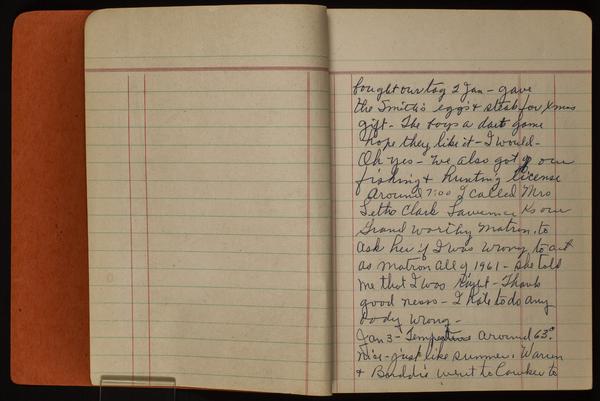 bought our tag 2 Jan - gave
the Smith's eggs & steak for Xmas
gift - The boys a dart game
hope they like it - I would -
Oh yes - We also got our
fishing & hunting license
Around 7:00 I called Mrs
Letha Clark Lawrence Ks our
Grand Worthy Matron, to
ask her if I was wrong to act
as Matron all of 1961 - She told
me that I was Right - Thank
good ness - I hate to do any
body wrong -
Jan 3 - Temperature Around 63°
Nice - just like summer. Warren
& Buddie went to Cawker to